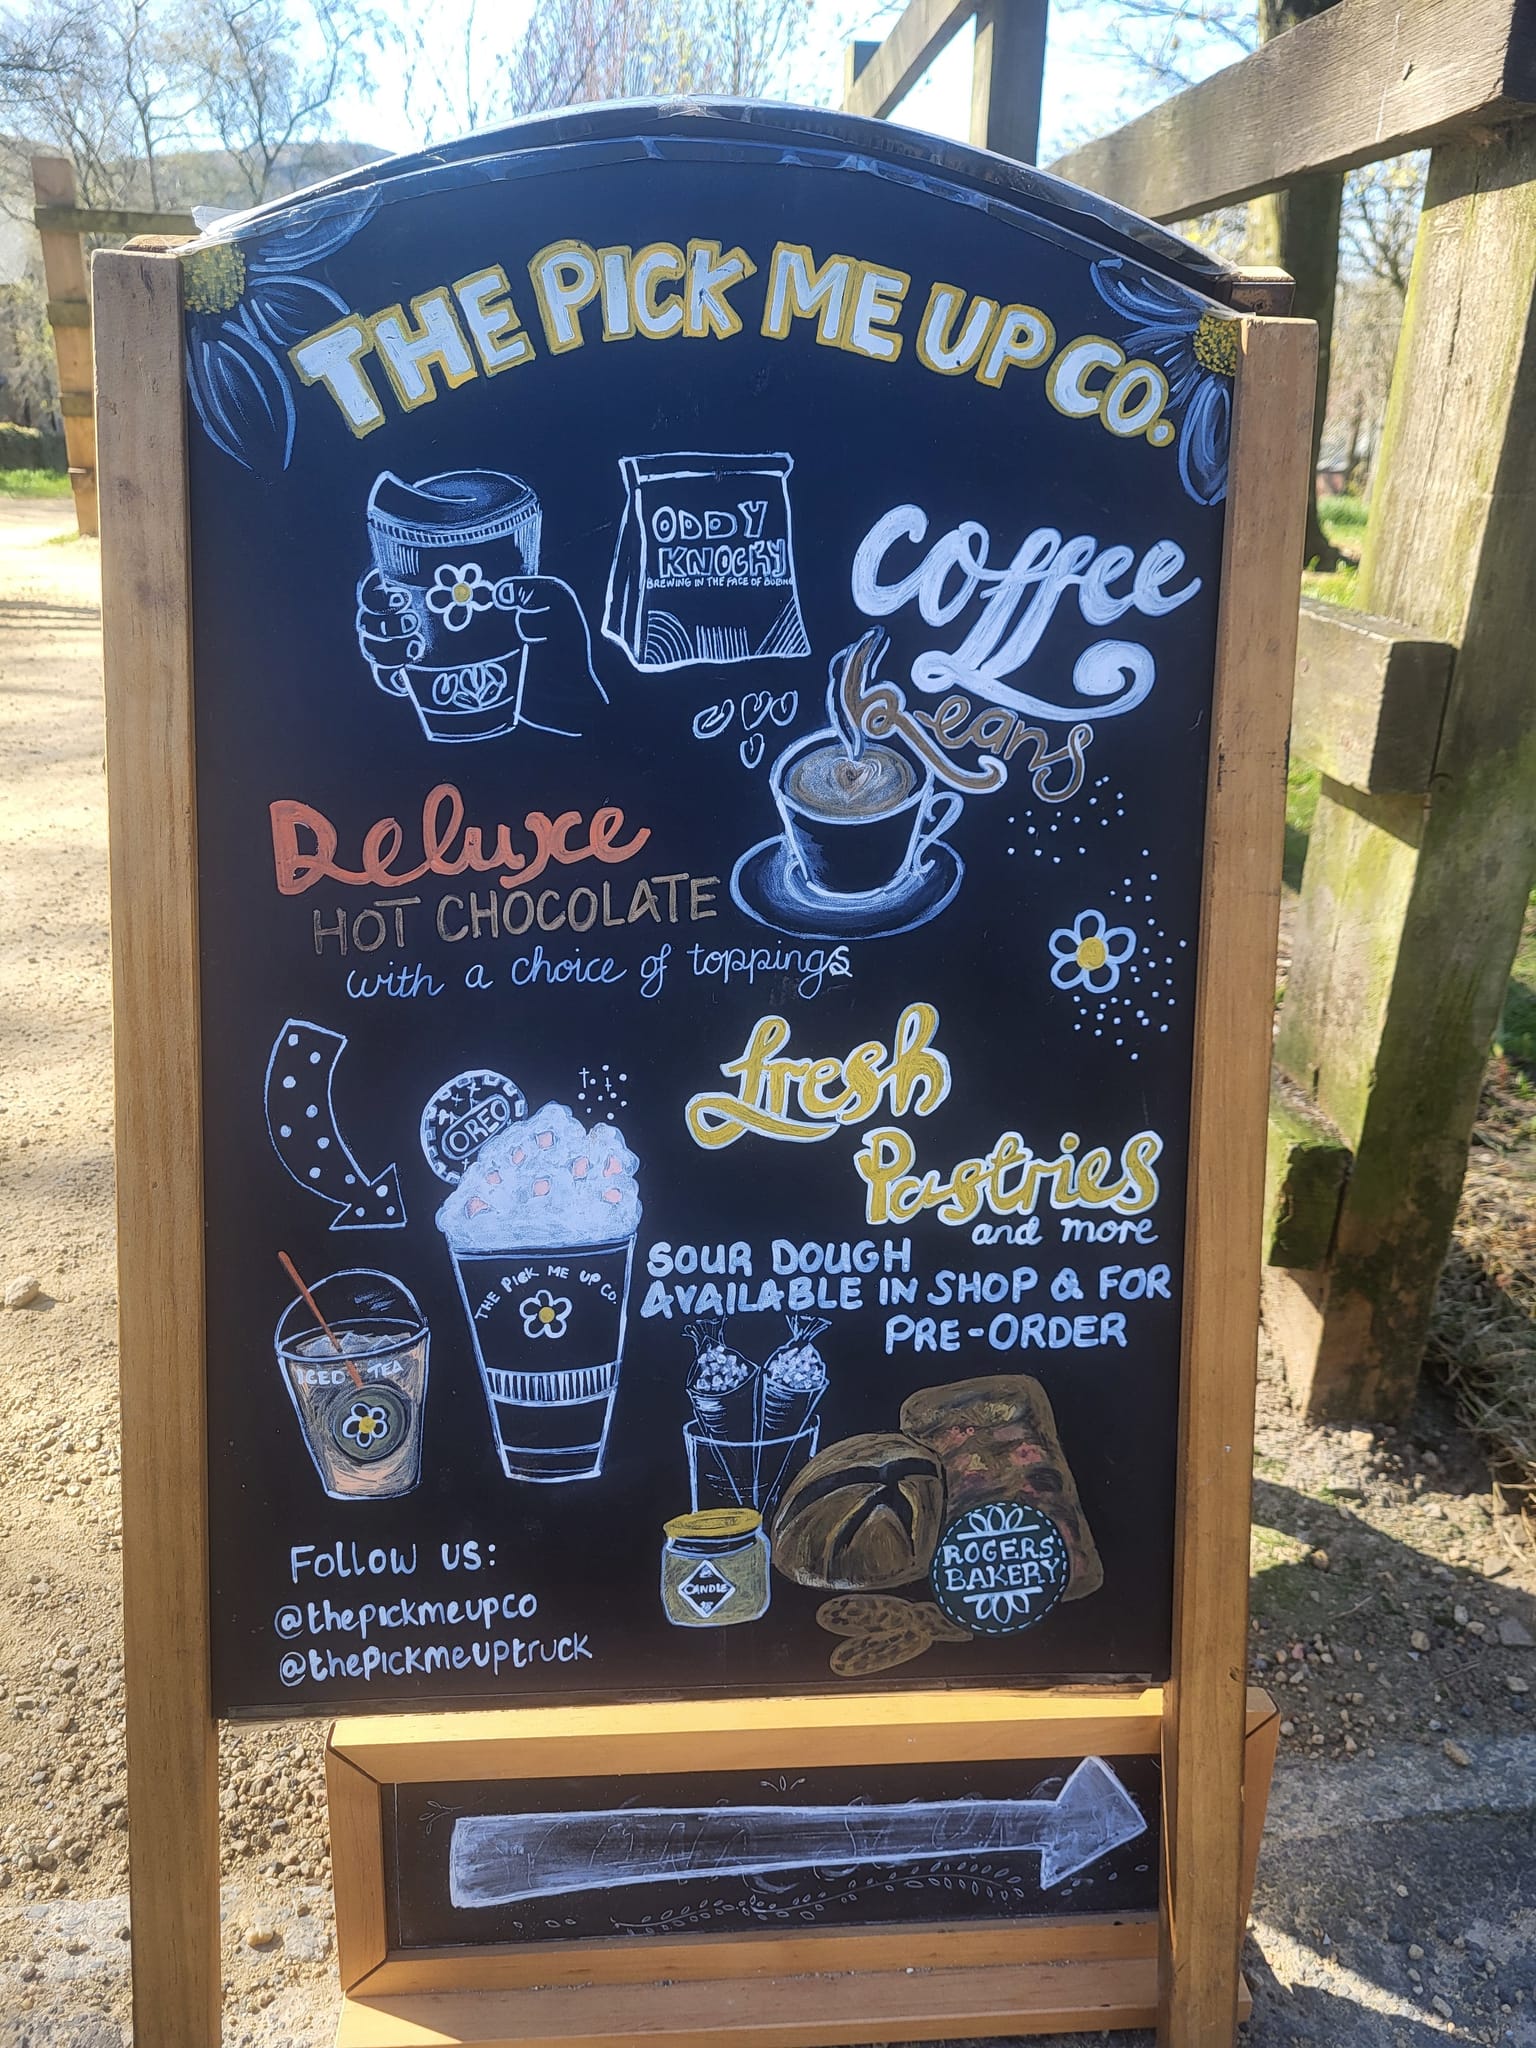 THE PICK ME UP CO.
ODDY
KNOCKY
BREWING IN THE FACE OF
Coffee
Beans
Deluxe
HOT CHOCOLATE
with a choice of toppings
fresh
Pastries
and more
OREO
SOUR DOUGH
AVAILABLE IN SHOP & FOR
PRE-ORDER
THE PICK ME UP CO.
ICED TEA
CANDLE
ROGERS
BAKERY
Follow us:
@thepickmeupco
@thepickmeuptruck